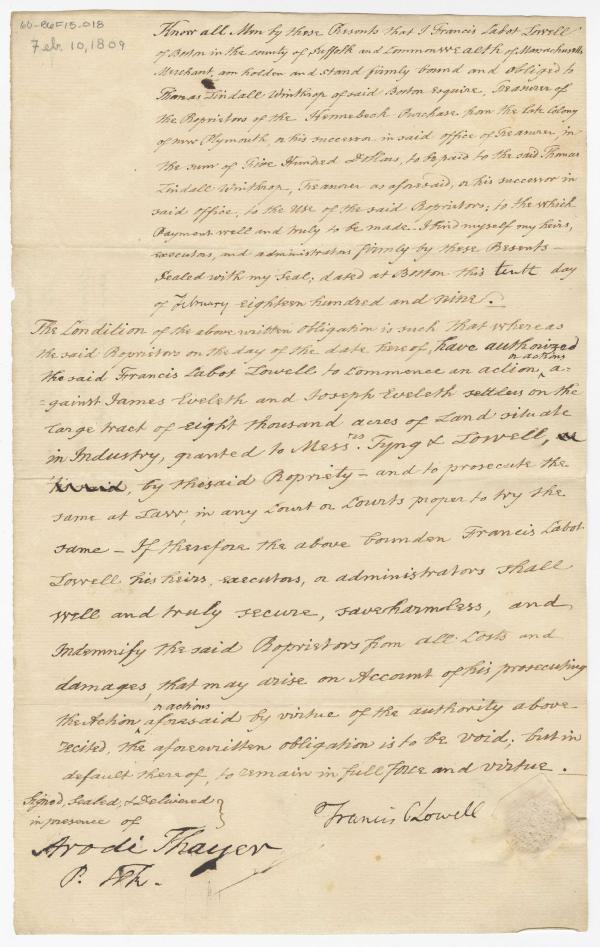 60-B6F15-018
Feb 10, 1809
Know all Men by these Presents that I Francis Cabot Lowell
of Boston in the county of Suffolk and Commonwealth of Massachusetts
Merchant, am holden and stand firmly bound and obliged to
Thomas Lindall Winthrop of said Boston Esquire, Treasurer of
the Proprietors of the Kennebeck Purchase from the late Colony
of new Plymouth, or his successor in said office of Treasurer, in
the sum of Five Hundred Dollars, to be paid to the said Thomas
Lindall Winthrop, Treasurer as aforesaid, or his successor in
said office, to the Use of the said Proprietors; to the which
Payment well and truly to be made. I bind myself my heirs,
executors, and administrators firmly by these Presents –
Sealed with my Seal; dated at Boston this tenth day
of February eighteen hundred and nine.
The Condition of the above written obligation is such that whereas
the said Proprietors on the day of the date hereof, have authorized
or actions
the said Francis Cabot Lowell to commence an action, a-
=gainst James Eveleth and Joseph Eveleth settlers on the
large tract of eight thousand acres of Land situate
in Industry, granted to Mess.rs Tyng & Lowell,
by the said Propriety – and to prosecute the
same at Law, in any Court or Courts proper to try the
same – If therefore the above bounden Francis Cabot
Lowell his heirs, executors, or administrators shall
well and truly secure, save harmless, and
Indemnify the said Proprietors from all Costs and
damages, that may arise on Account of his prosecuting
or actions
the Action aforesaid by virtue of the authority above
recited, the aforewritten obligation is to be void; but in
default thereof, to remain in full force and virtue.
Signed, Sealed, & Delivered
in presence of
Francis C Lowell
Arodi Thayer
P.